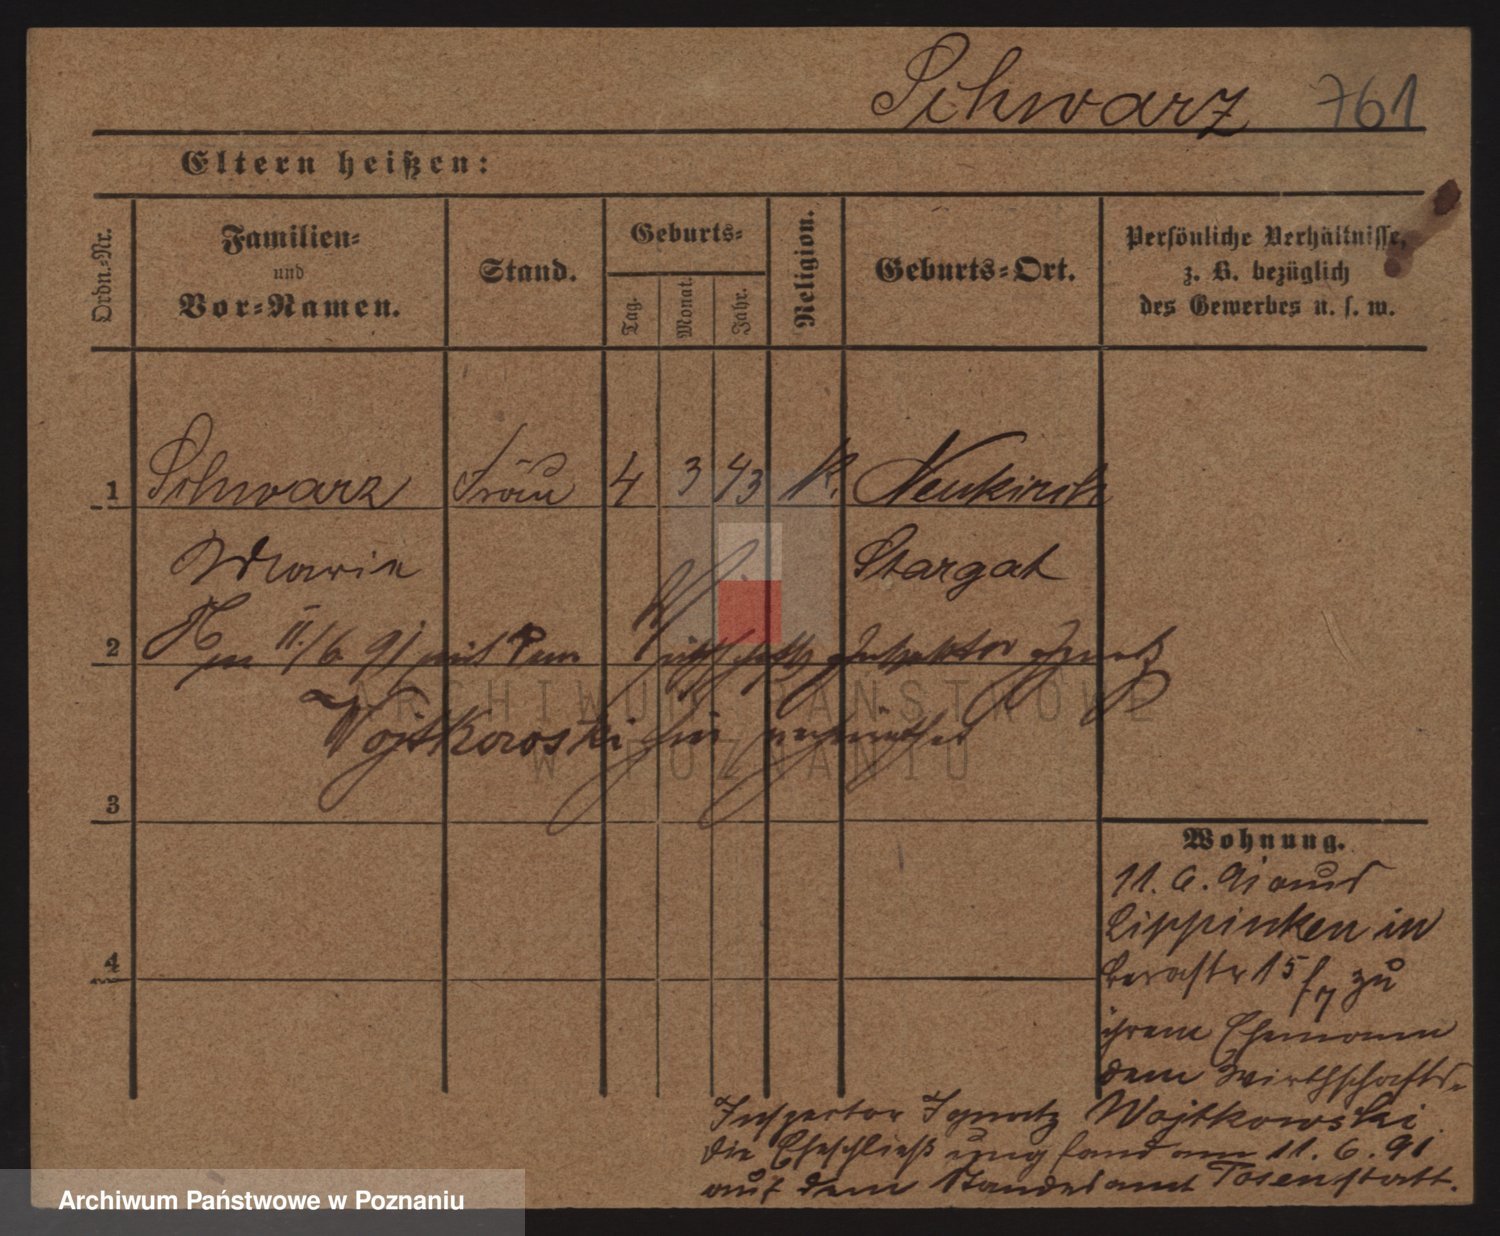 Schwarz 761
Eltern heißen:
Ordn.-Nr.
Familien-
und
Vor-Namen.
Stand.
Geburts-
Tag.
Monat.
Jahr.
Religion.
Geburts-Ort.
Persönliche Verhältnisse,
z. B. bezüglich
des Gewerbes u. s. w.
1 Schwarz Frau 4 3 43 K. Neukirch
Marie Stargat
2 11/6 91 mit dem Wirthschafts Inspektor Ignatz
Wojtkowski hier
3
4
Wohnung.
11. 6. 91 aus
Lippinken in
15 zu
ihrem Ehemann
dem Wirthschafts-
Inspector Ignatz Wojtkowski
die Eheschließung fand am 11. 6. 91
auf dem Standesamt statt.
ARCHIWUM PAŃSTWOWE
W POZNANIU
Archiwum Państwowe w Poznaniu